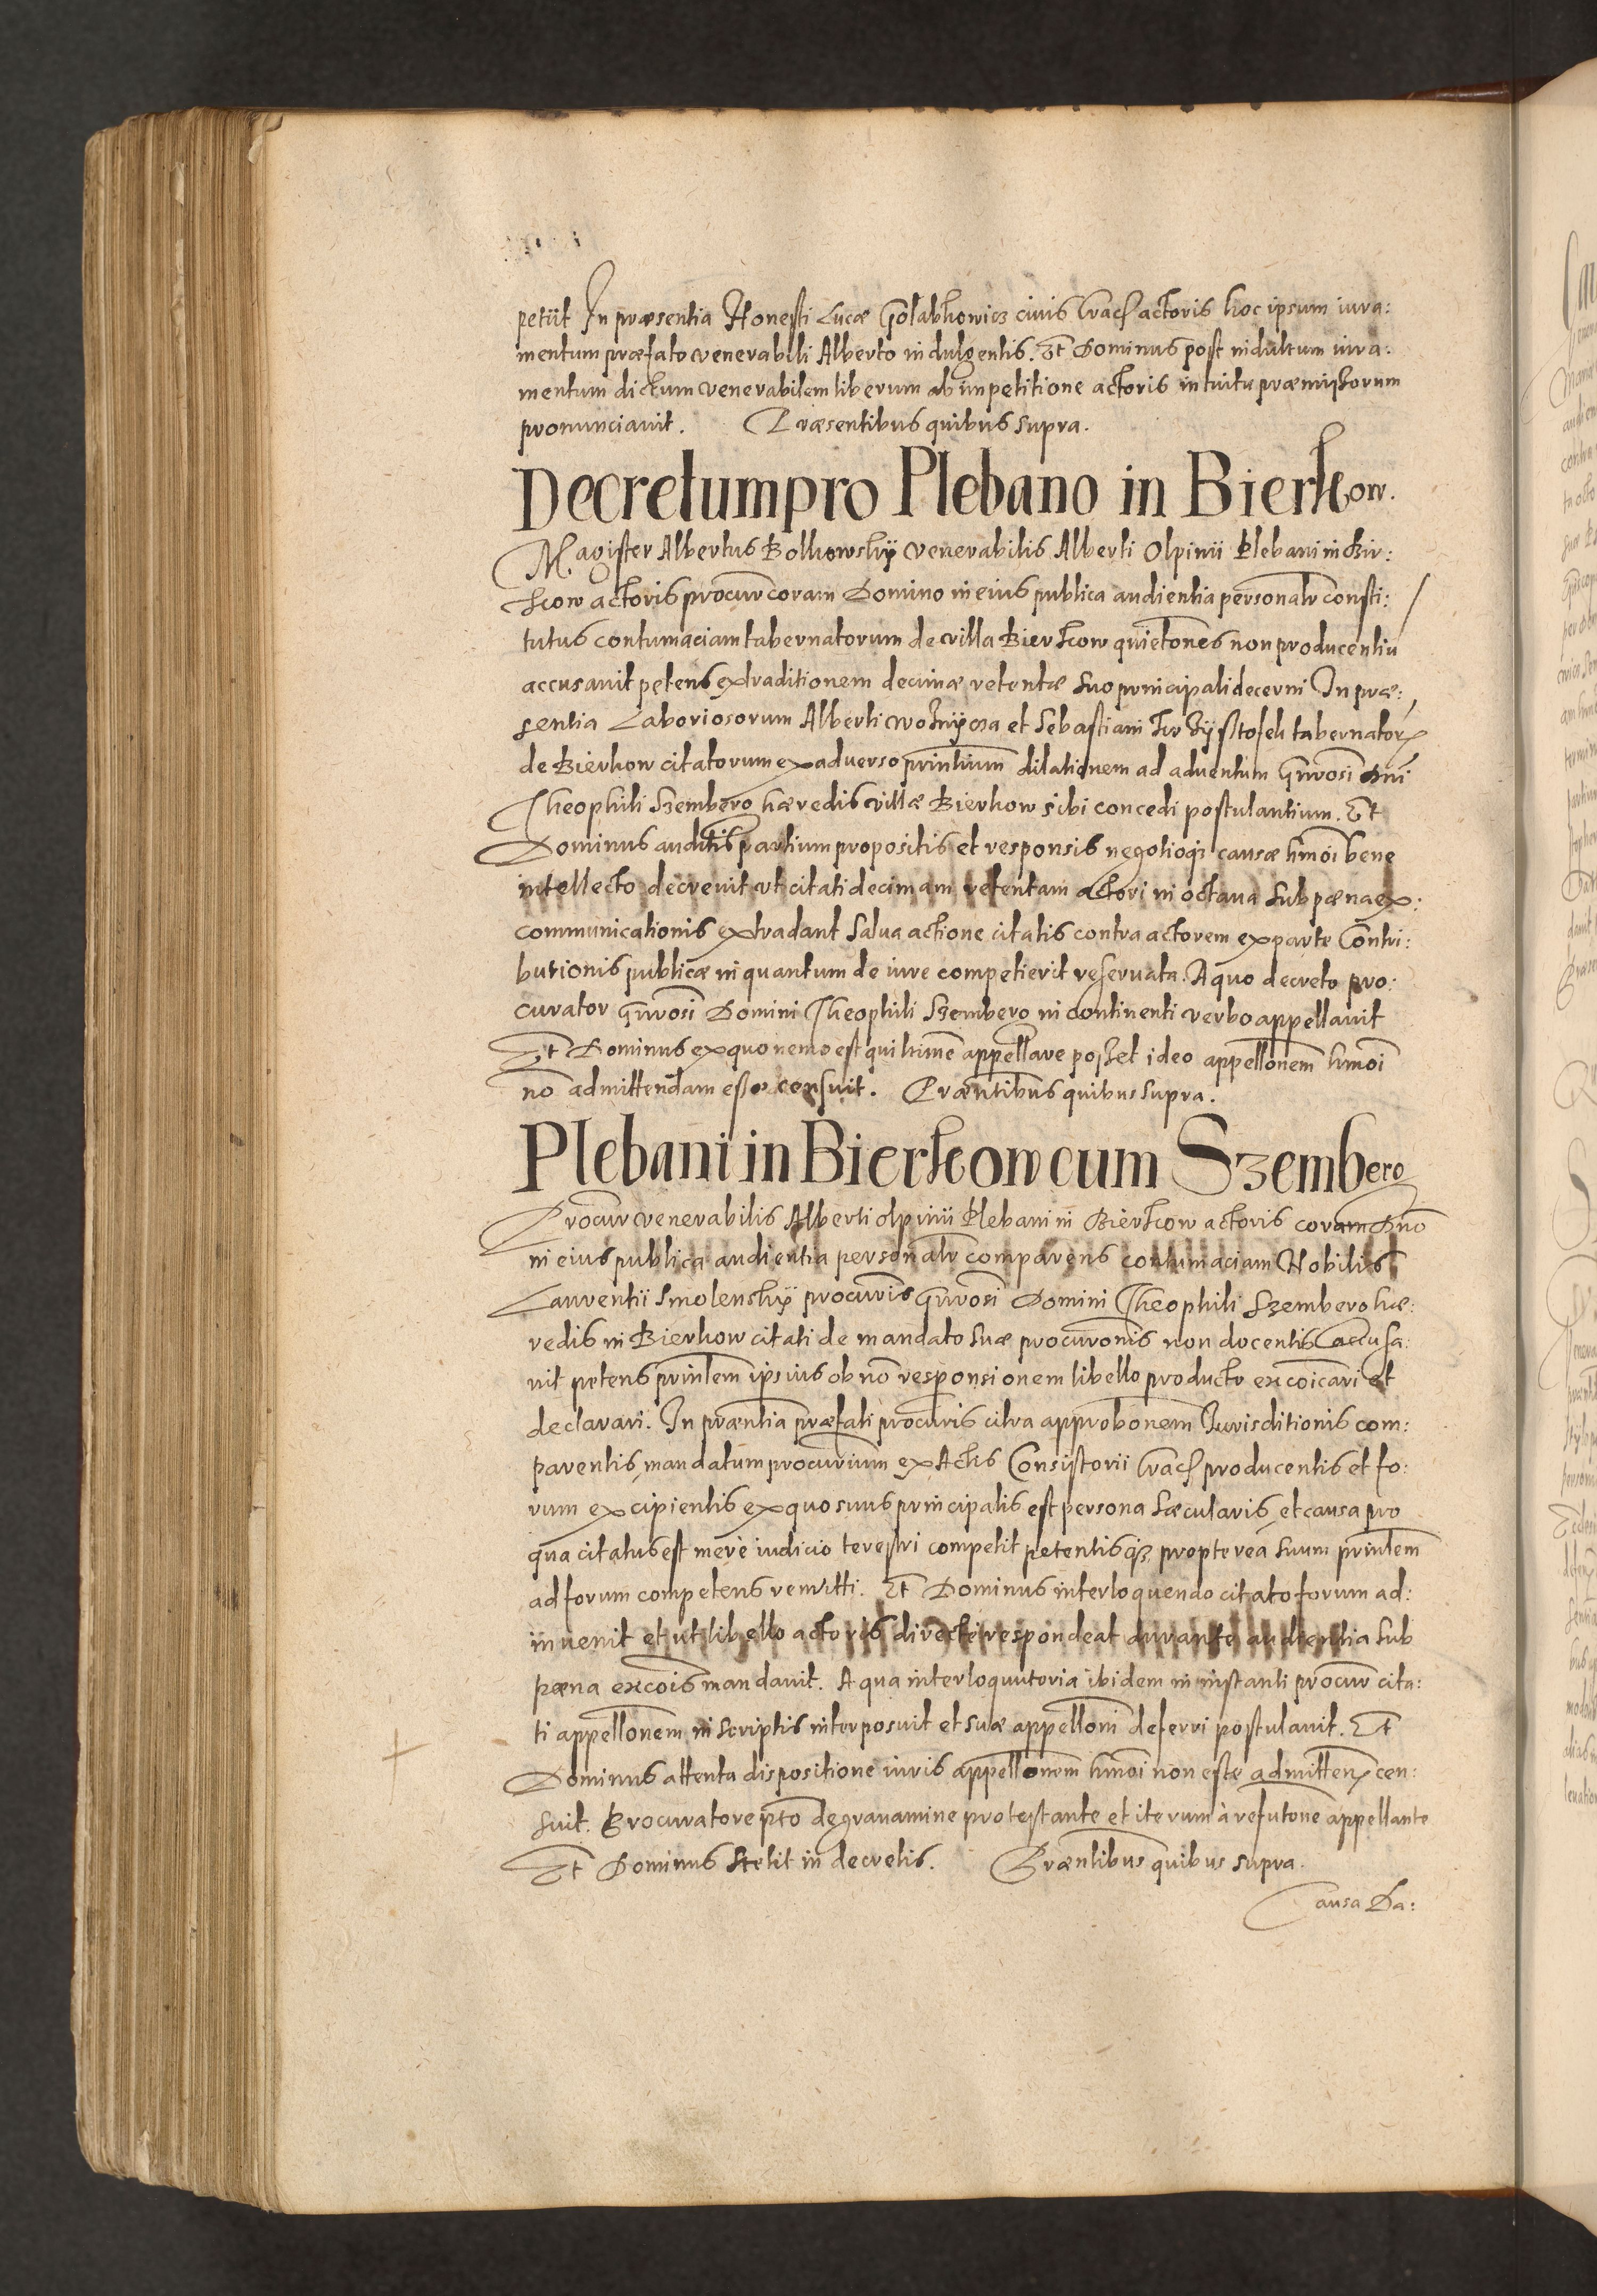 petiit In præsentia Honesti Lucæ Golabkowicz ciuis Crac actoris hoc ipsum iura:
mentum præfato venerabili Alberto indulgentis. Et Dominus post indultum iura:
mentum dictum venerabilem liberum ab impetitione actoris intuitu præmissorum
pronunciauit. Præsentibus quibus supra.
Decretum pro Plebano in Bierkow.
Magister Albertus Bolkowskÿ venerabilis Alberti Olpinii Plebani in Bir:
kow actoris procur coram Domino in eius publica audientia personalr consti:
tutus contumaciam tabernatorum de villa Bierkow quietones non producentiu
accusauit petens extraditionem decimæ retentæ suo principali decerni In præ:
sentia Laboriosorum Alberti et Sebastiani tabernator
de Bierkow citatorum ex aduerso printium dilationem ad aduentum Gnrosi Dni
Theophili Szembero hæredis villæ Bierkow sibi concedi postulantium. Et
Dominus auditis partium propositis et responsis negotioq3 causæ hmoi bene
intellecto decreuit ut citati decimam retentam actori in octaua sub pæna ex:
communicationis extradant salua actione citatis contra actorem ex parte Contri:
butionis publicæ in quantum de iure competierit reseruata. A quo decreto pro:
curator Gnrosi Domini Theophili Szembero in continenti verbo appellauit
Et Dominus ex quo nemo est qui ltime appellare posset ideo appellonem hmoi
no admittendam esse censuit. Præntibus quibus supra.
Plebani in Bierkow cum Szembero
Procur venerabilis Alberti Olpinii Plebani in Bierkow actoris coram Dno
in eius publica audientia personalr comparens contumaciam Nobilis
Laurentii Smolenskÿ procuris Gnrosi Domini Theophili Szembero hæ:
redis in Bierkow citati de mandato suæ procuronis non docentis accusa:
uit petens printem ipsius ob no responsionem libello producto excoicari et
declarari. In præntia præfati procuris citra approbonem Jurisditionis com:
parentis, mandatum procurium ex Actis Consistorii Crac producentis et fo:
rum excipientis ex quo suus principalis est persona sæcularis, et causa pro
qua citatus est mere iudicio terestri competit petentisq3 propterea suum printem
ad forum competens remitti. Et Dominus interloquendo citato forum ad:
inuenit et ut libello actoris directe respondeat durante audientia sub
pæna excois mandauit. A qua interloquutoria ibidem in instanti procur cita:
ti appellonem in scriptis interposuit et suæ appelloni deferri postulauit. Et
Dominus attenta dispositione iuris appellonem hmoi non esse admitten cen:
suit. Procuratore pto de grauamine protestante et iterum à refutone appellante
Et Dominus stetit in decretis. Præntibus quibus supra.
Causa Da: